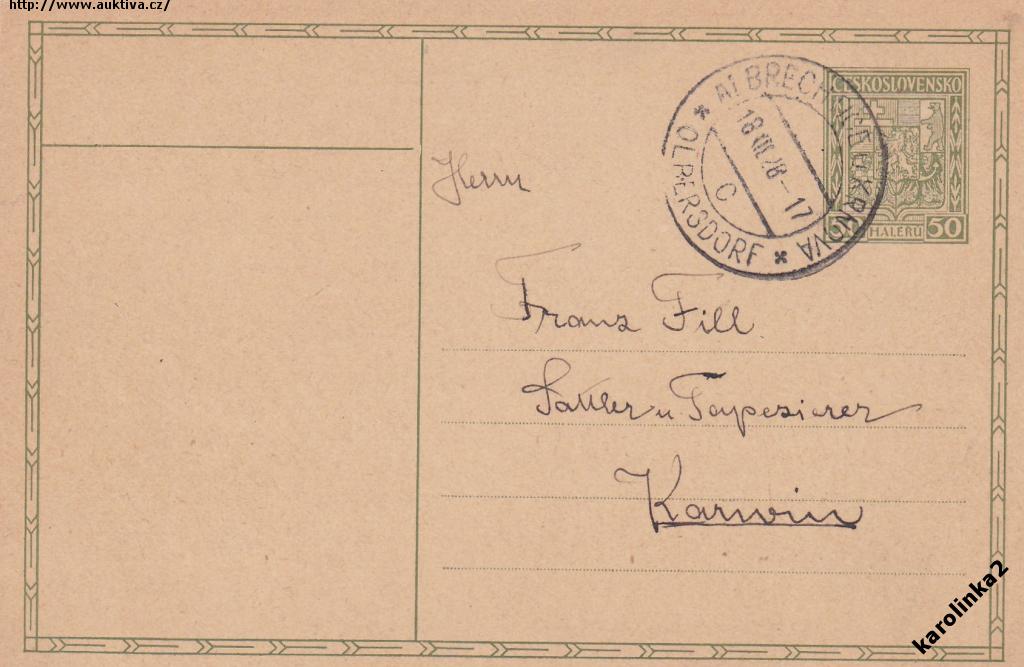 http://www.auktiva.cz/
ČESKOSLOVENSKO
50 HALÉŘŮ 50
U KRNOVA
* OLBERSDORF *
18 VIII 28 - 17
C
Herrn
Franz Fill
Sattler u Tapezierer
Karwin
karolinka2